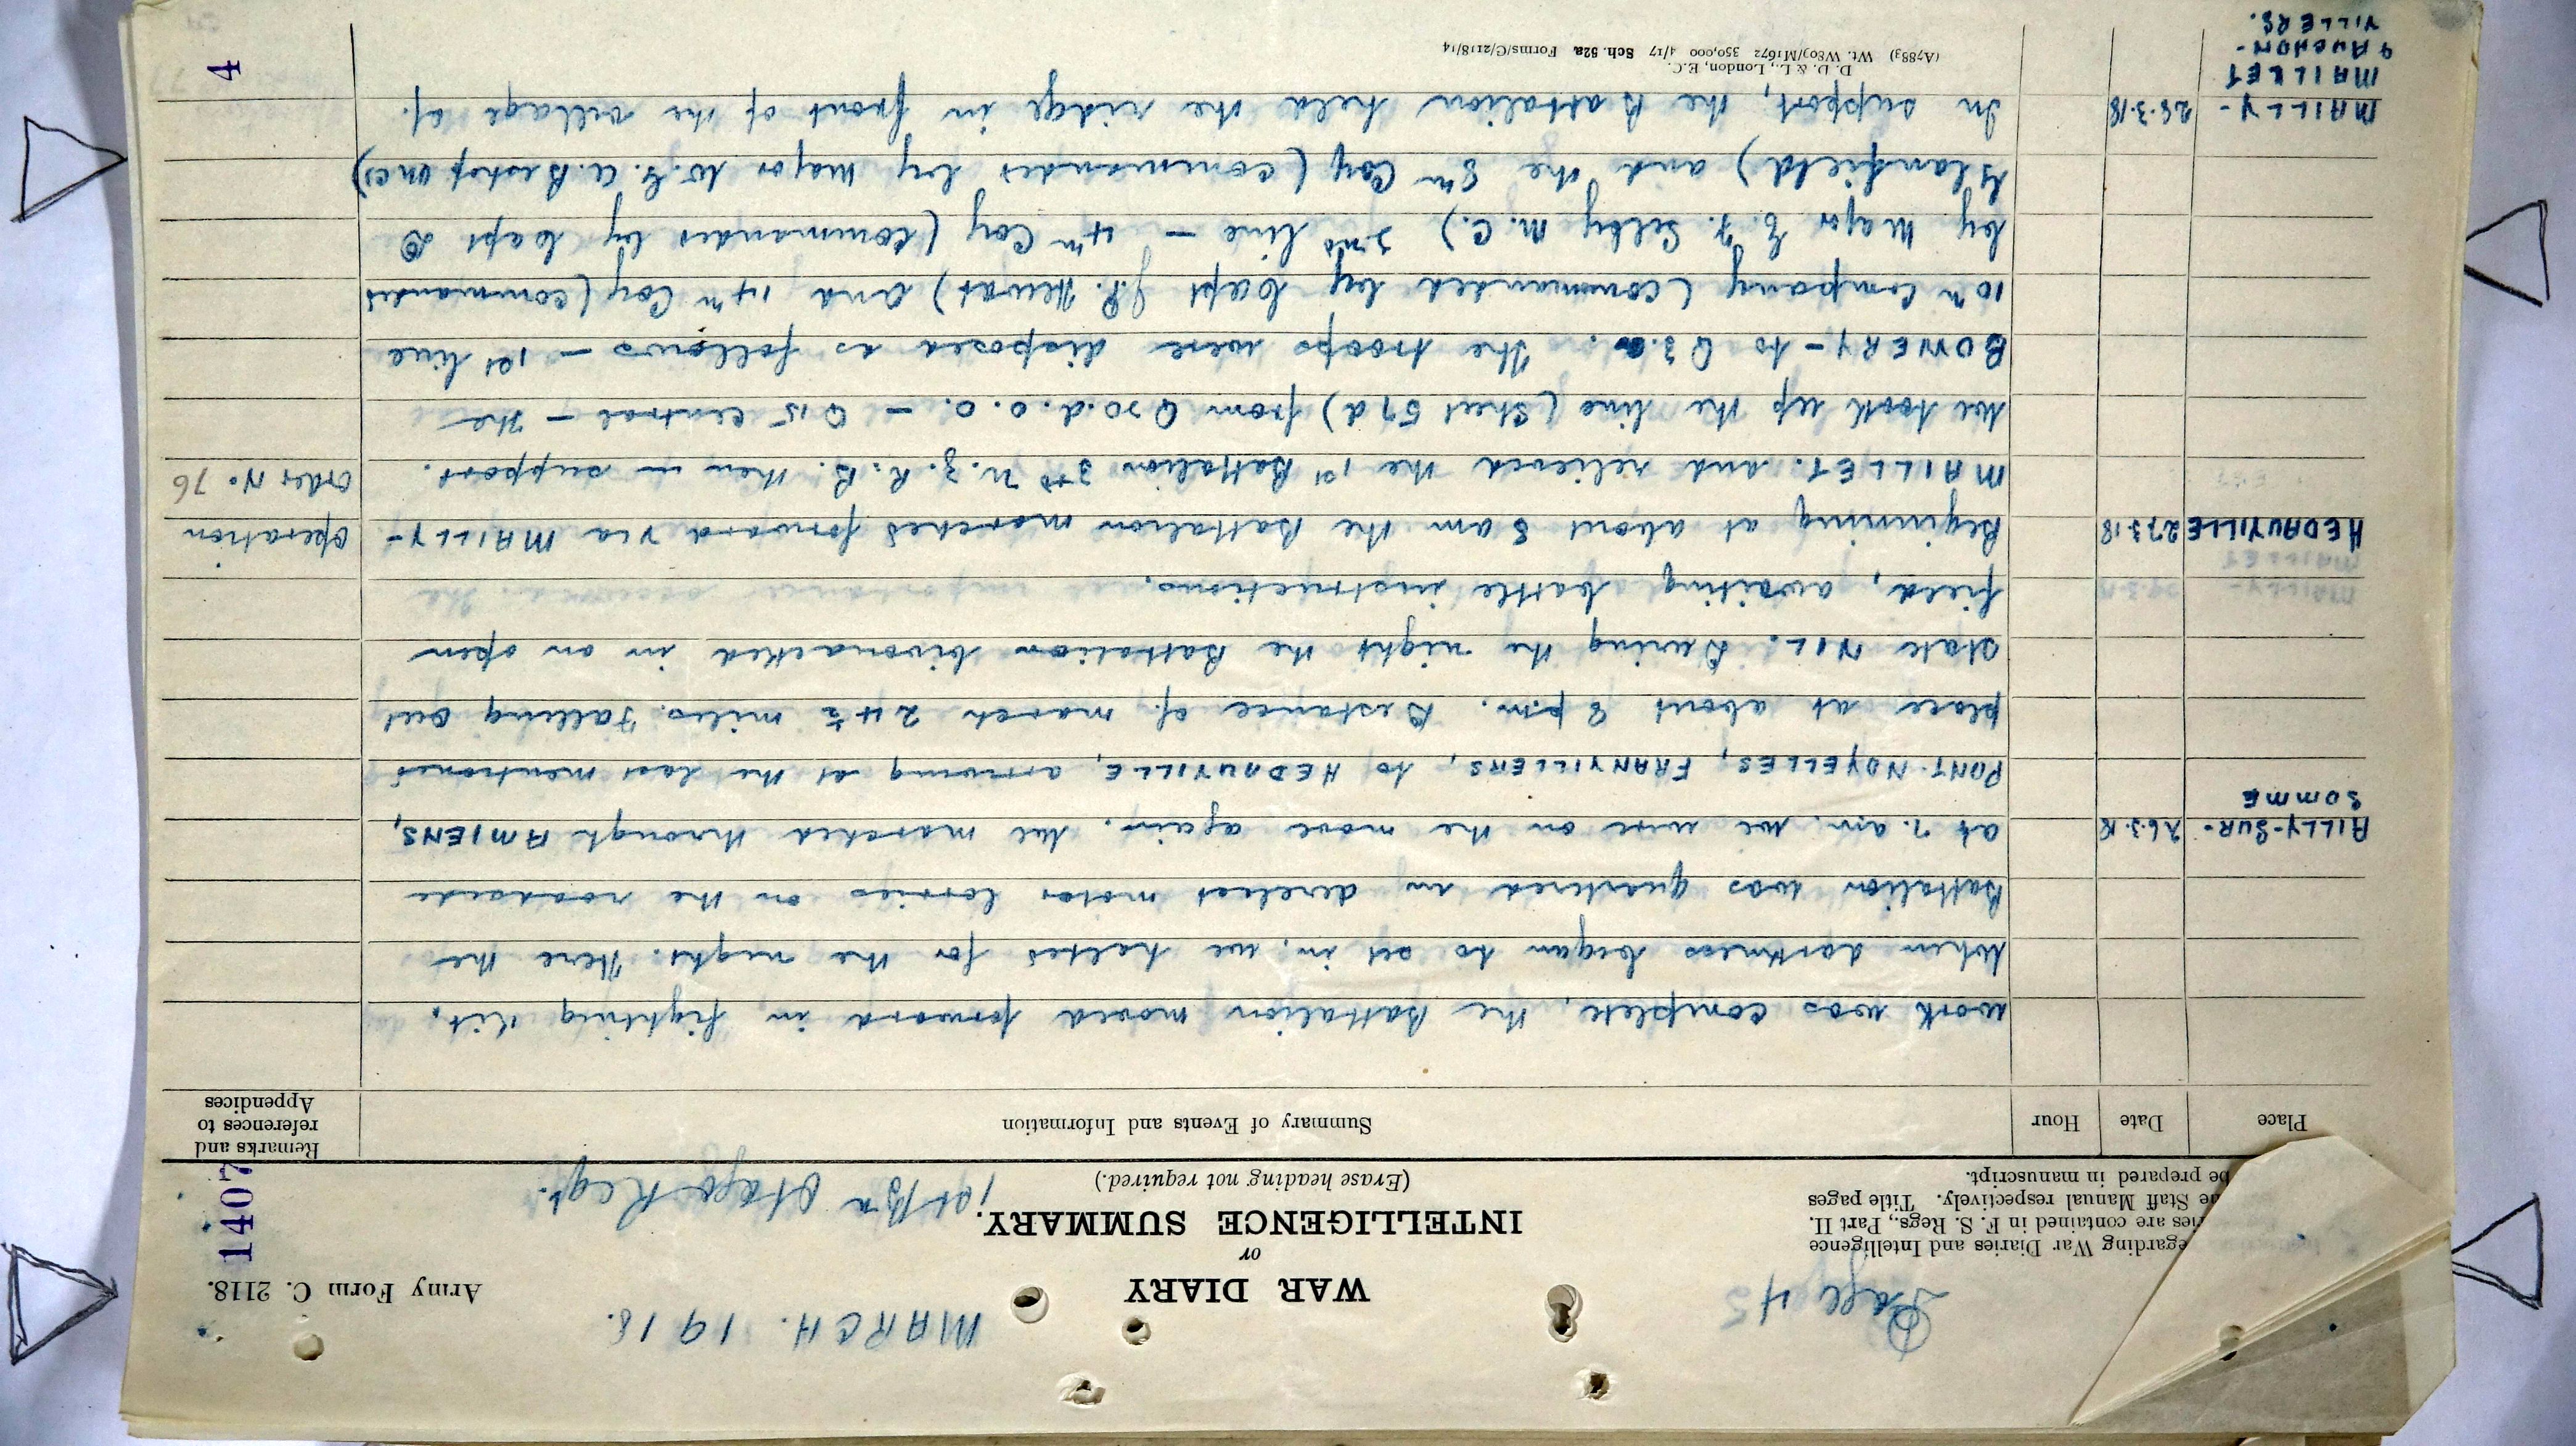 Page 45
MARCH. 1918.
Army Form C. 2118.
WAR DIARY
or
INTELLIGENCE SUMMARY.
(Erase heading not required.)
1st Bn Otago Regt.
1407
egarding War Diaries and Intelligence
ries are contained in F. S. Regs., Part II.
he Staff Manual respectively. Title pages
be prepared in manuscript.
Place
Date
Hour
Summary of Events and Information
Remarks and
references to
Appendices
work was complete, the Battalion moved forward in fighting kit.
When darkness began to set in, we halted for the night. Here the
Battalion was quartered in derelict motor lorries on the roadside
AILLY-SUR- 26.3.18 at 7. a.m. we were on the move again. We marched through AMIENS,
SOMME
PONT-NOYELLES, FRANVILLERS, to HEDAUVILLE, arriving at the last mentioned
place at about 8 p.m. Distance of march 24½ miles. Falling out
state NIL. During the night the Battalion bivouacked in an open
field, awaiting battle instructions.
HEDAUVILLE 27.3.18 Beginning at about 8 am the Battalion marched forward via MAILLY- Operation
MAILLET. and relieved the 1st Battalion 3rd N.Z.R.B. then in support. Order No. 76
We took up the line (Sheet 57d) from Q 20.d.0.0. – Q 15 central – the
BOWERY – to Q 3. The troops were disposed as follows – 1st line
10th Company (commanded by Capt J.P. Hewat) and 14th Coy (commanded
by Major E.J. Selby M.C.) 2nd line – 4th Coy (commanded by Capt D
Glanfield) and the 8th Coy (commanded by Major W.G.A. Bishop MC)
MAILLY- 28.3.18 In support, the Battalion held the ridge in front of the village of.
MAILLET
& AUCHON-
VILLERS.
D. D. & L., London, E.C.
(A7883) Wt. W809/M1672 350,000 4/17 Sch. 52a Forms/C/2118/14
4